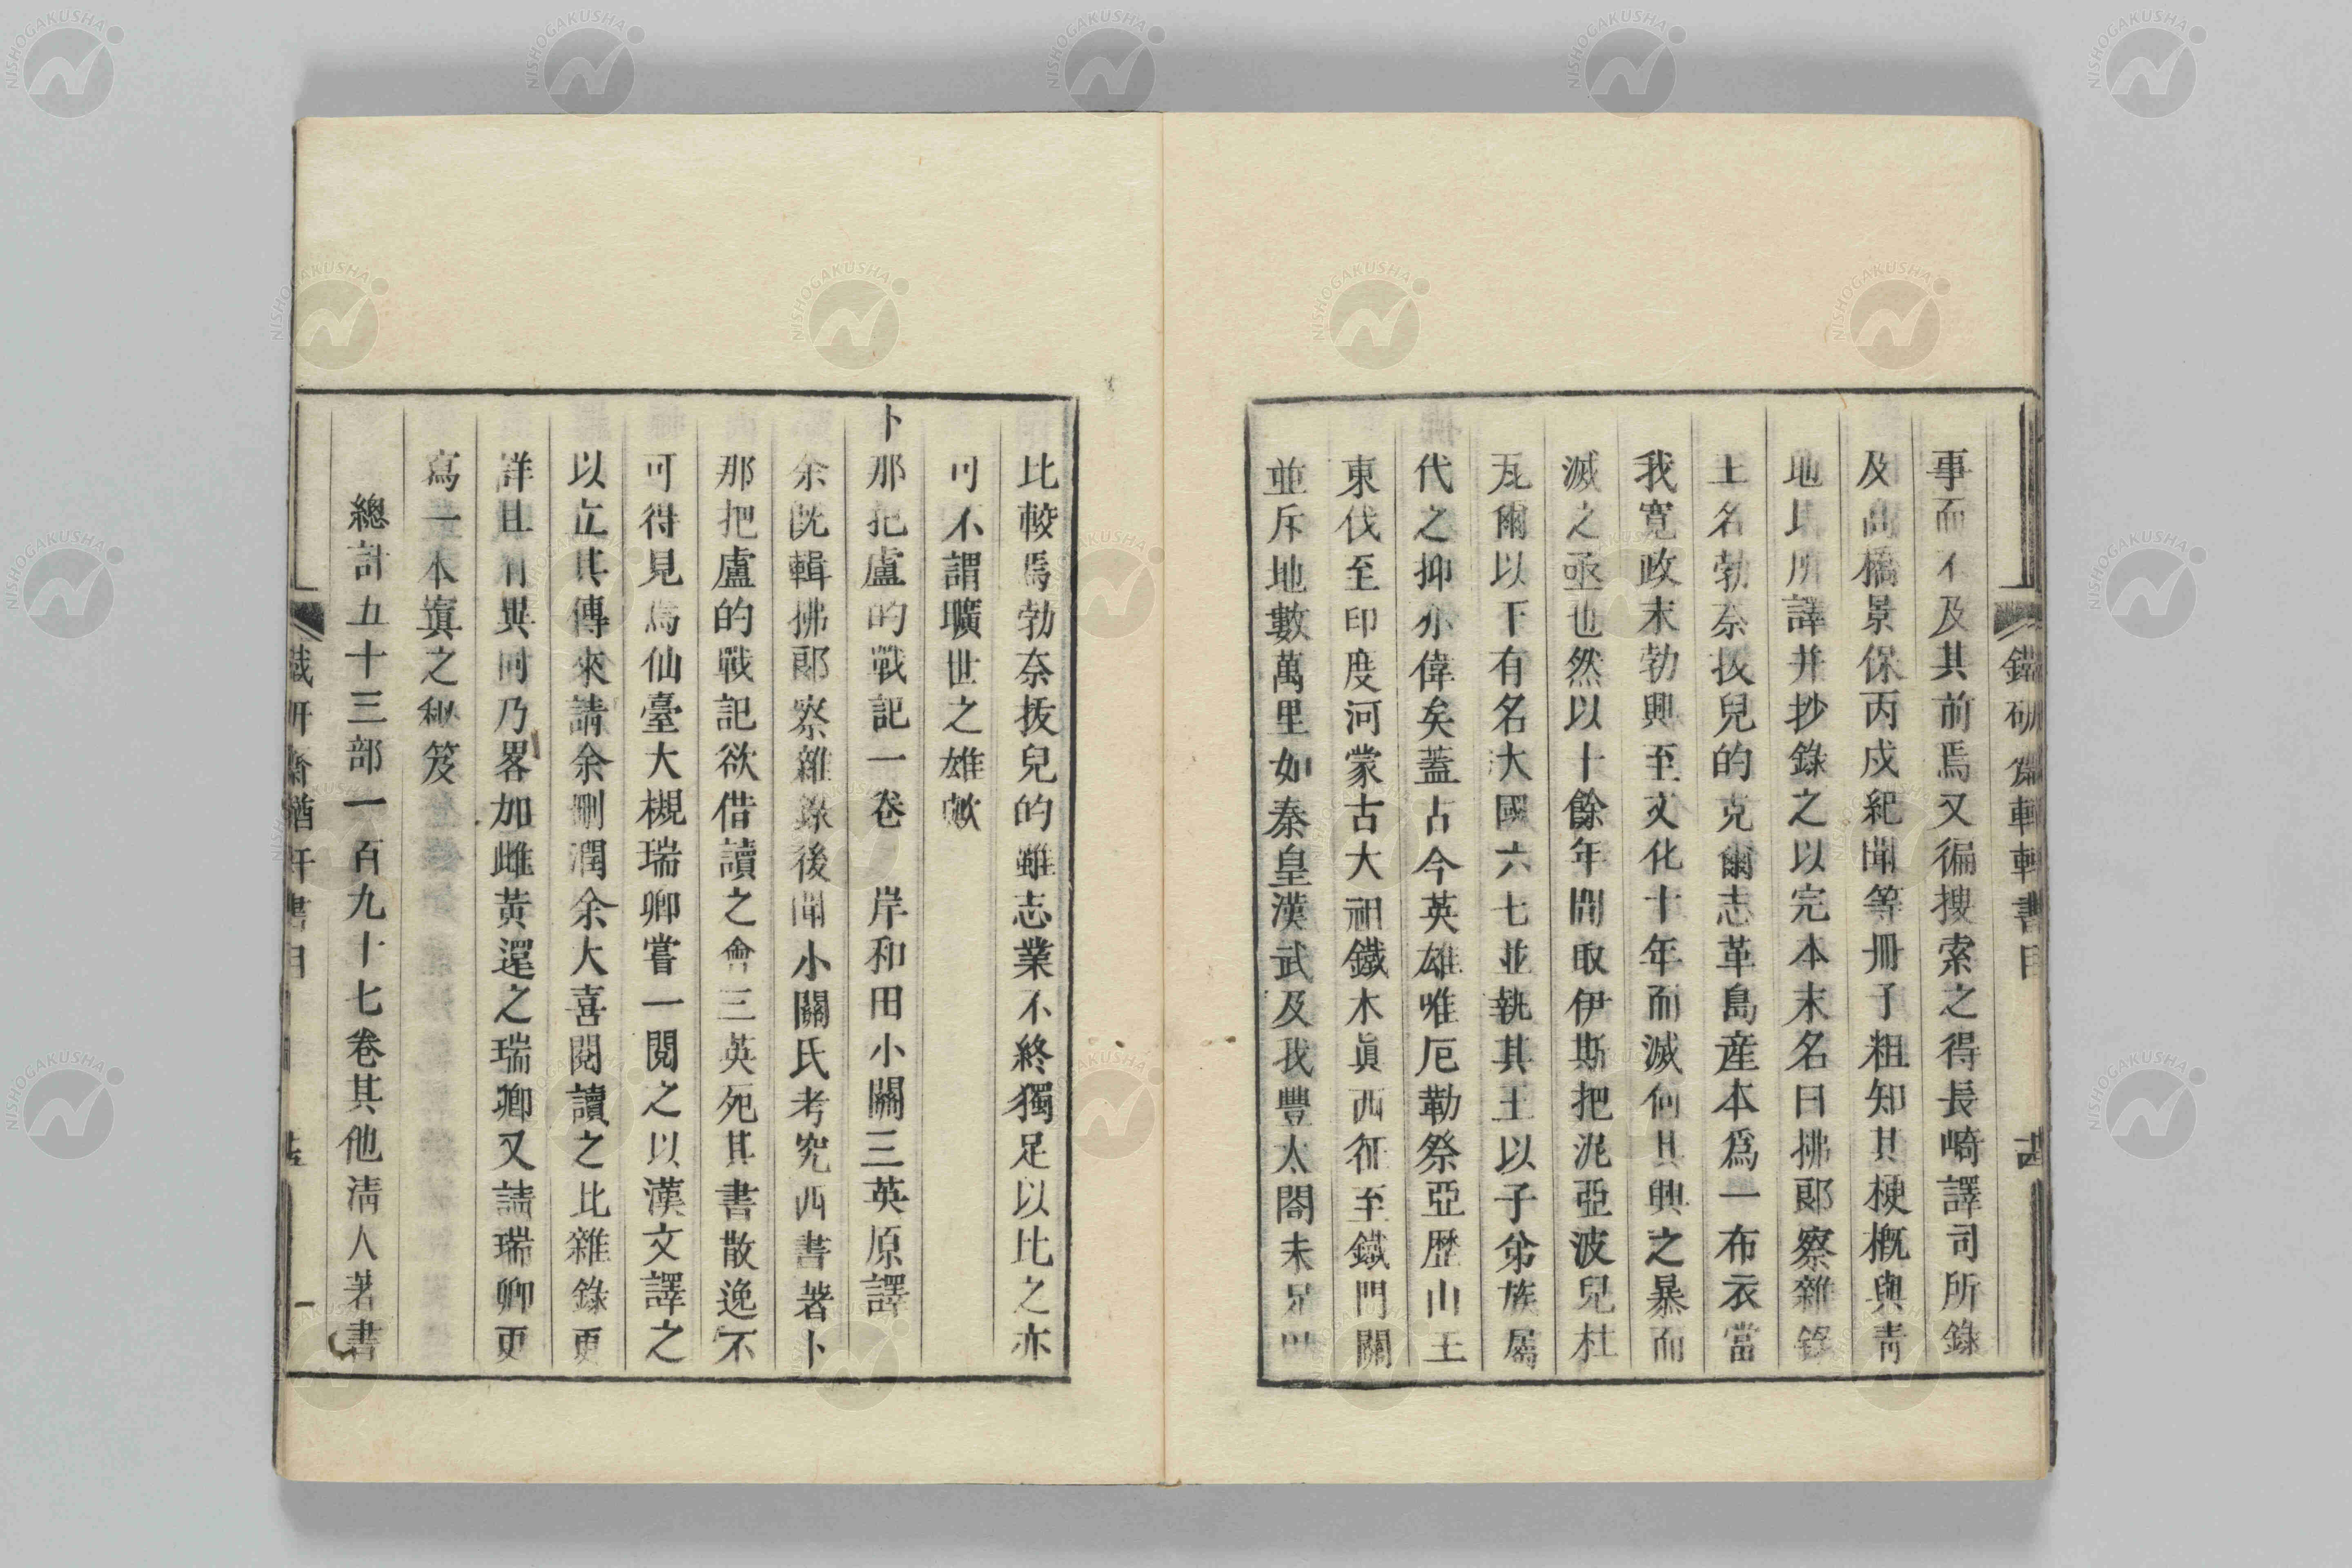 鐵研齋輶軒書目
事而不及其前焉又徧搜索之得長崎譯司所錄
及高橋景保丙戌紀聞等冊子粗知其梗概與青
地氏所譯并抄錄之以完本末名曰拂郎察雜錄
王名勃奈抜兒的克爾志革島産本爲一布衣當
我寛政末勃興至文化十年而滅何其興之暴而
滅之亟也然以十餘年間取伊斯把泥亞波兒杜
瓦爾以下有名大國六七並執其王以子弟族屬
代之抑亦偉矣蓋古今英雄唯厄勒祭亞歴山王
東伐至印度河蒙古大祖鐵木眞西征至鐵門關
並斥地數萬里如秦皇漢武及我豐太閤未足以
比較焉勃奈抜兒的雖志業不終獨足以比之亦
可不謂曠世之雄歟
卜那把盧的戰記一卷 岸和田小關三英原譯
余既輯拂郎察雜錄後聞小關氏考究西書著卜
那把盧的戰記欲借讀之會三英死其書散逸不
可得見焉仙臺大槻瑞卿嘗一閲之以漢文譯之
以立其傳來請余刪潤余大喜閲讀之比雜錄更
詳且有異同乃畧加雌黄還之瑞卿又請瑞卿更
寫一本寘之秘笈
總計五十三部一百九十七卷其他清人著書